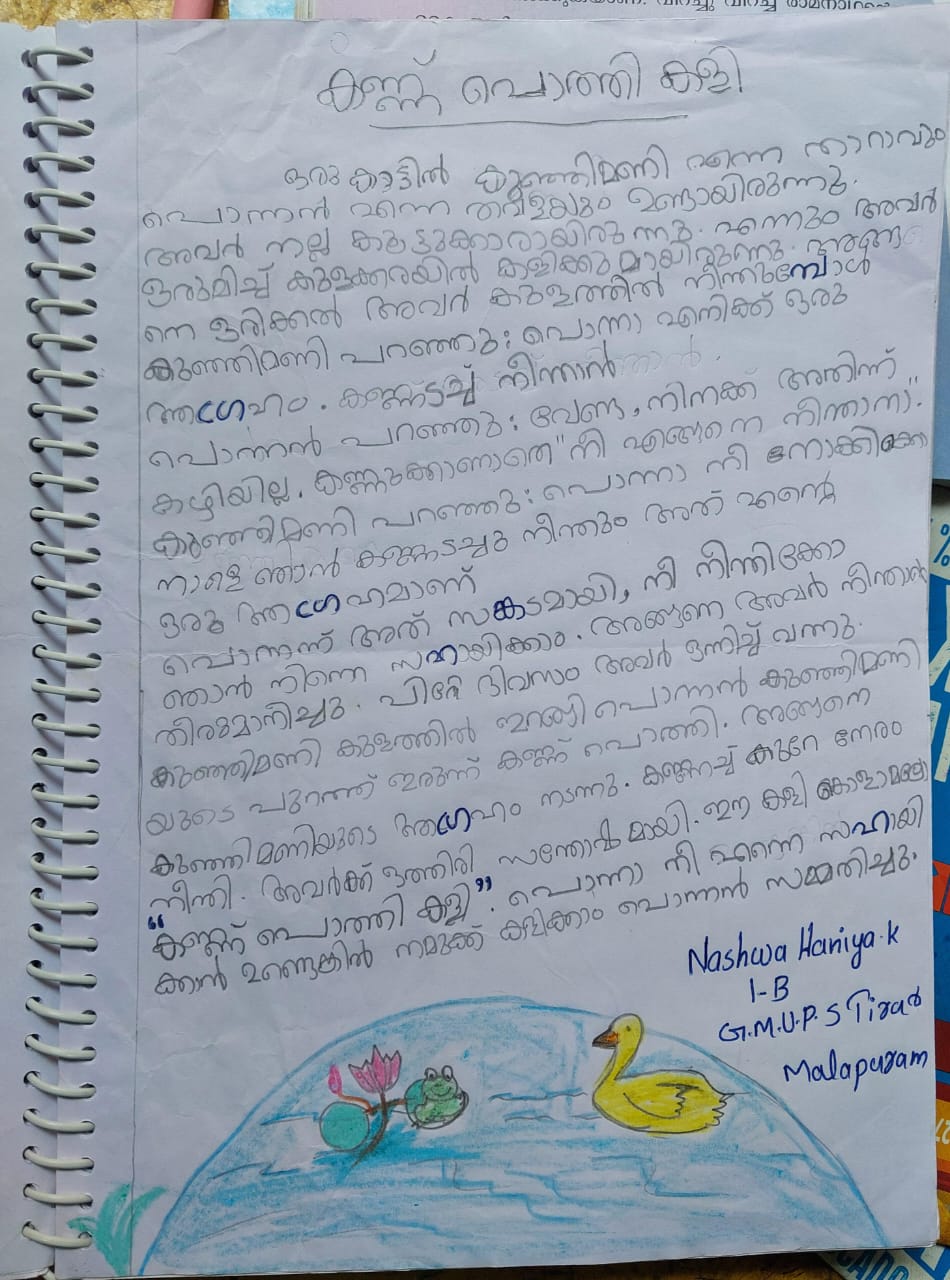 കണ്ണ് പൊത്തി കളി
ഒരു കാട്ടിൽ കുഞ്ഞിമണി എന്ന താറാവും
പൊന്നൻ എന്ന തവളയും ഉണ്ടായിരുന്നു.
അവർ നല്ല കൂട്ടുക്കാരായിരുന്നു. എന്നും അവർ
ഒരുമിച്ച് കുളക്കരയിൽ കളിക്കുമായിരുന്നു. അങ്ങ
നെ ഒരിക്കൽ അവർ കുളത്തിൽ നീന്തുമ്പോൾ
കുഞ്ഞിമണി പറഞ്ഞു: പൊന്നാ എനിക്ക് ഒരു
ആഗ്രഹം. കണ്ണടച്ച് നീന്താൻ
പൊന്നൻ പറഞ്ഞു: വേണ്ട, നിനക്ക് അതിന്ന്
കഴിയില്ല. കണ്ണുക്കാണാതെ "നീ എങ്ങനെ നീന്താനാ."
കുഞ്ഞിമണി പറഞ്ഞു: പൊന്നാ നീ നോക്കിക്കോ
നാളെ ഞാൻ കണ്ണടച്ചു നീന്തും അത് എന്റെ
ഒരു ആഗ്രഹമാണ്
പൊന്നന്ന് അത് സങ്കടമായി, നീ നീന്തിക്കോ
ഞാൻ നിന്നെ സഹായിക്കാം. അങ്ങനെ അവർ നീന്താൻ
തീരുമാനിച്ചു. പിറ്റേ ദിവസം അവർ ഒന്നിച്ച് വന്നു.
കുഞ്ഞിമണി കുളത്തിൽ ഇറങ്ങി പൊന്നൻ കുഞ്ഞിമണി
യുടെ പുറത്ത് ഇരുന്ന് കണ്ണ് പൊത്തി. അങ്ങനെ
കുഞ്ഞിമണിയുടെ ആഗ്രഹം നടന്നു. കണ്ണടച്ച് കുറേ നേരം
നീന്തി. അവർക്ക് ഒത്തിരി സന്തോഷമായി. ഈ കളി കൊള്ളാമല്ലോ
"കണ്ണ് പൊത്തി കളി". പൊന്നാ നീ എന്നെ സഹായി
ക്കാൻ ഉണ്ടെങ്കിൽ നമുക്ക് കളിക്കാം പൊന്നൻ സമ്മതിച്ചു.
Nashwa Haniya.k
1-B
G.M.U.P.S Tirur
Malapuram